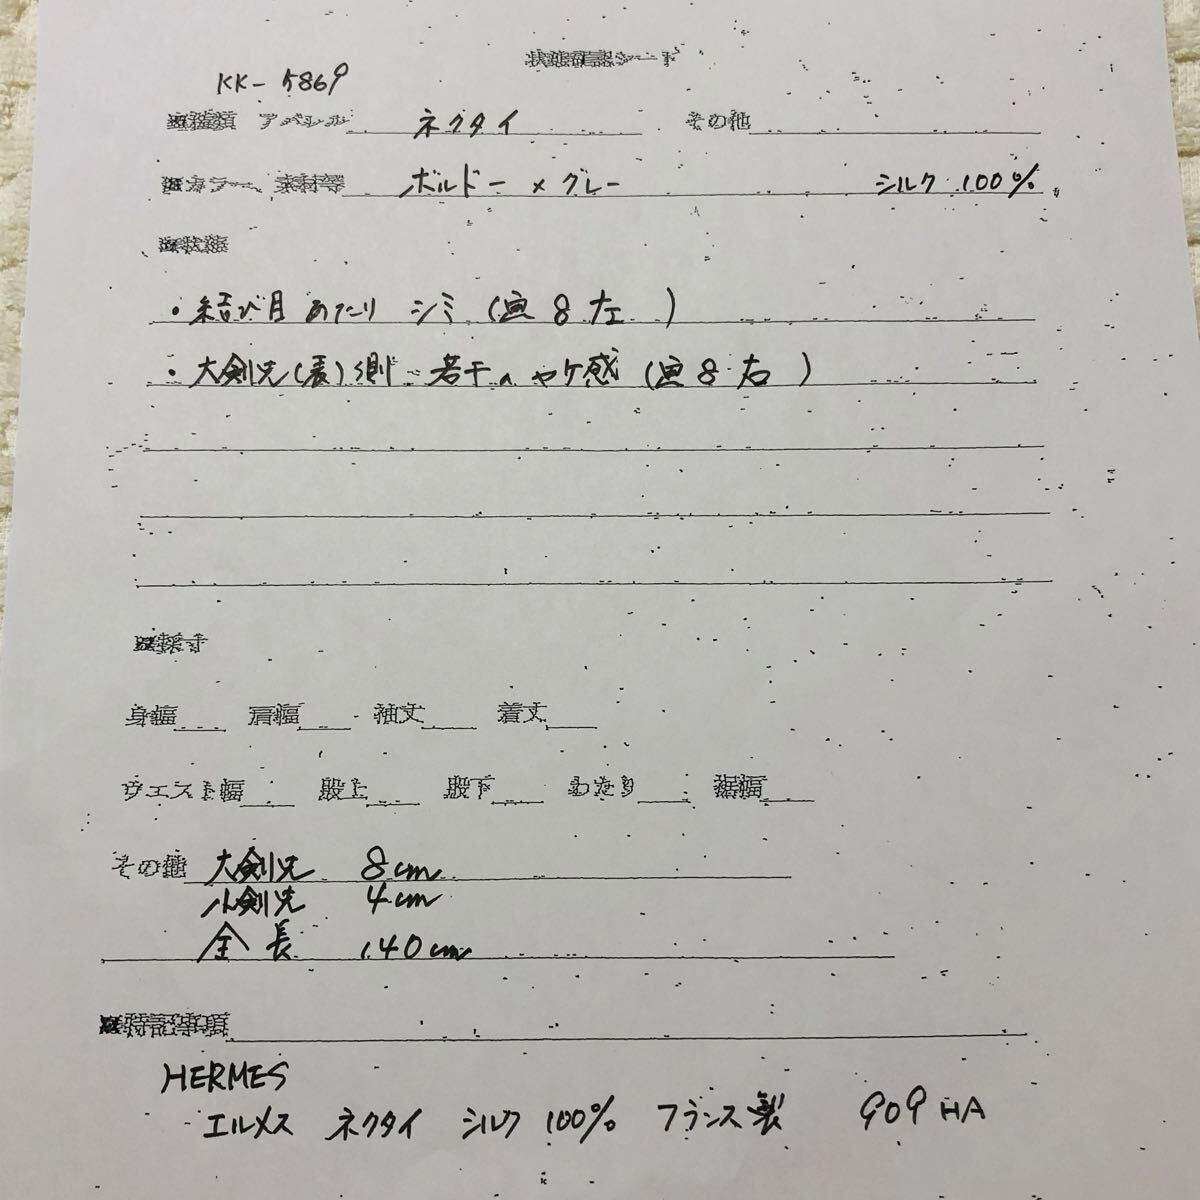 状態確認シート
KK-5869
※種類 アパレル ネクタイ その他
※カラー、素材等 ボルドー×グレー シルク 100%
※状態
・結び目あたり シミ (画8左 )
・大剣先(表)側 若干のヤケ感 (画8右 )
※採寸
身幅 肩幅 袖丈 着丈
ウエスト幅 股上 股下 わたり 裾幅
その他 大剣先 8cm
小剣先 4cm
全長 140cm
※特記事項
HERMES
エルメス ネクタイ シルク 100% フランス製 909 HA